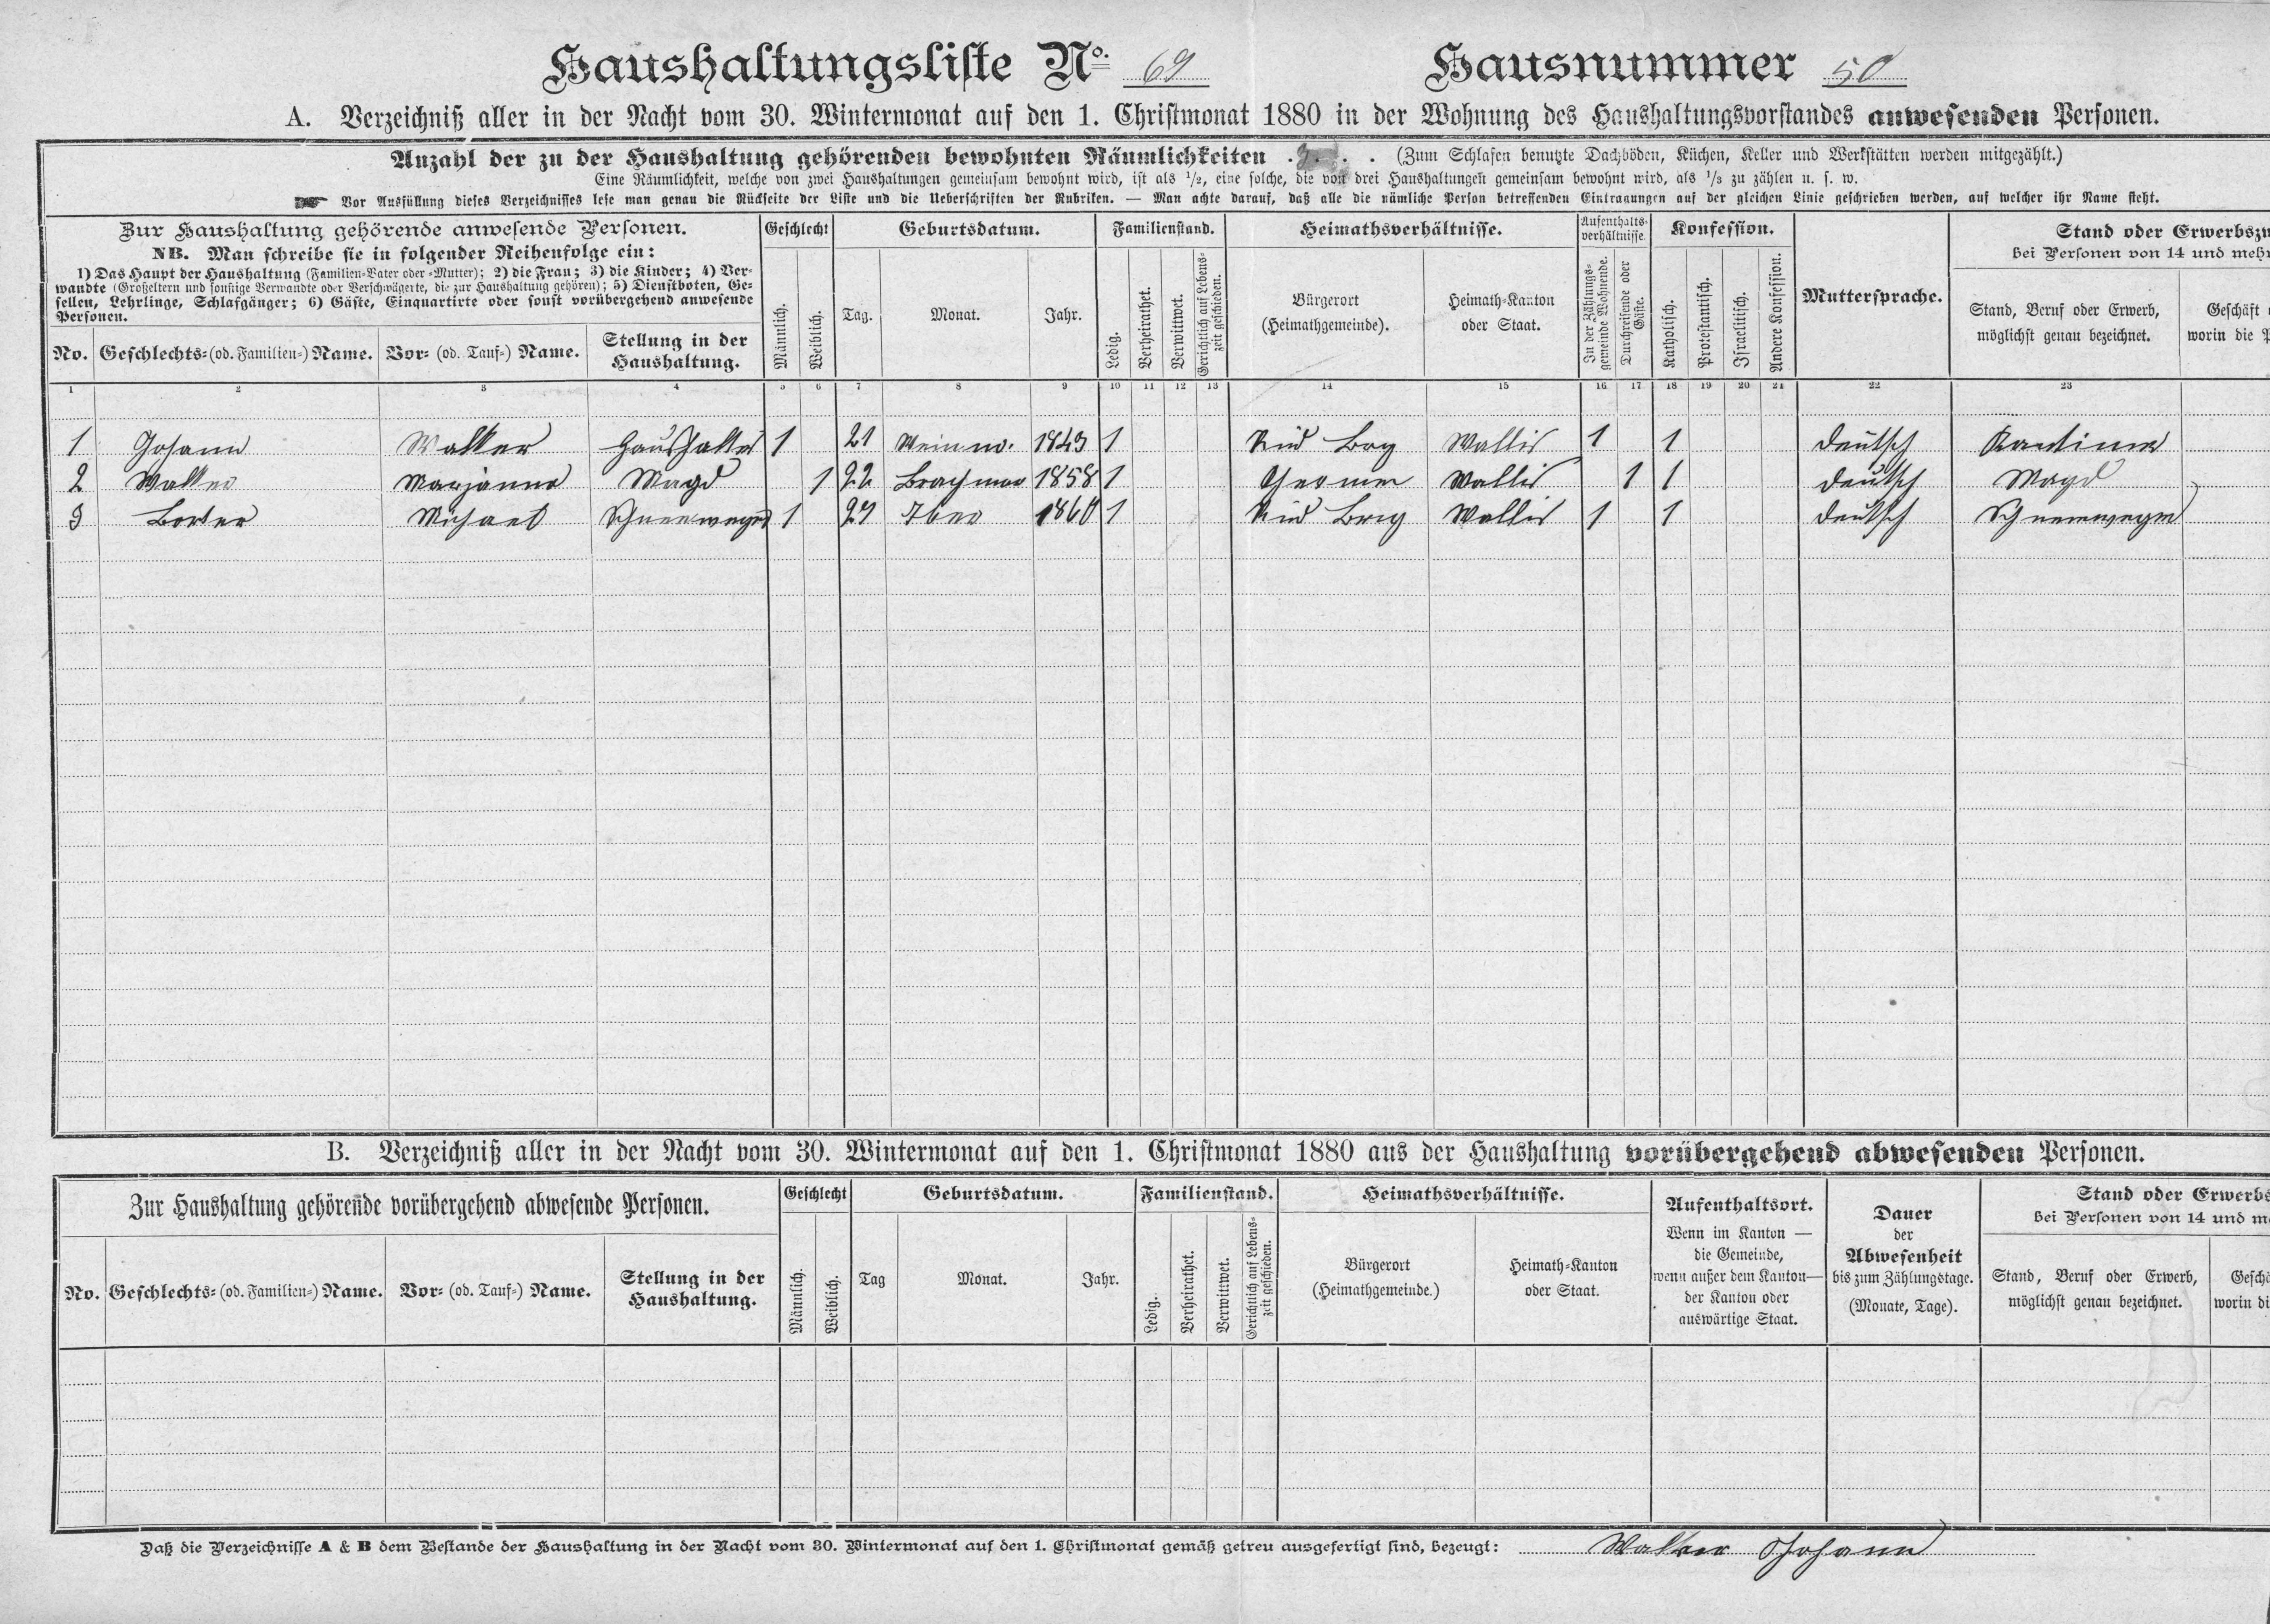 Haushaltungsliste No. 69 Hausnummer 50
A. Verzeichniß aller in der Nacht vom 30. Wintermonat auf den 1. Christmonat 1880 in der Wohnung des Haushaltungsvorstandes anwesenden Personen.
Anzahl der zu der Haushaltung gehörenden bewohnten Räumlichkeiten . 3 . . (Zum Schlafen benutzte Dachböden, Küchen, Keller und Werkstätten werden mitgezählt.)
Eine Räumlichkeit, welche von zwei Haushaltungen gemeinsam bewohnt wird, ist als 1/2, eine solche, die von drei Haushaltungen gemeinsam bewohnt wird, als 1/3 zu zählen u. s. w.
Vor Ausfüllung dieses Verzeichnisses lese man genau die Rückseite der Liste und die Ueberschriften der Rubriken. — Man achte darauf, daß alle die nämliche Person betreffenden Eintragungen auf der gleichen Linie geschrieben werden, auf welcher ihr Name steht.
Zur Haushaltung gehörende anwesende Personen.
NB. Man schreibe sie in folgender Reihenfolge ein:
1) Das Haupt der Haushaltung (Familien-Vater oder -Mutter); 2) die Frau; 3) die Kinder; 4) Ver-
wandte (Großeltern und sonstige Verwandte oder Verschwägerte, die zur Haushaltung gehören); 5) Dienstboten, Ge-
sellen, Lehrlinge, Schlafgänger; 6) Gäste, Einquartirte oder sonst vorübergehend anwesende
Personen.
No. Geschlechts- (od. Familien-) Name. Vor- (od. Tauf-) Name. Stellung in der
Haushaltung.
Geschlecht
Männlich. Weiblich.
Geburtsdatum.
Tag. Monat. Jahr.
Familienstand.
Ledig. Verheirathet. Verwittwet. Gerichtlich auf Lebens-
zeit geschieden.
Heimathsverhältnisse.
Bürgerort
(Heimathgemeinde).
Heimath-Kanton
oder Staat.
Aufenthalts-
verhältnisse.
In der Zählungs-
gemeinde Wohnende.
Durchreisende oder
Gäste.
Konfession.
Katholisch. Protestantisch. Israelitisch. Andere Konfession.
Muttersprache.
Stand oder Erwerbszu
bei Personen von 14 und mehr
Stand, Beruf oder Erwerb,
möglichst genau bezeichnet.
Geschäft
worin die P
1 2 3 4 5 6 7 8 9 10 11 12 13 14 15 16 17 18 19 20 21 22 23
1 Johann Walker Haushalter 1 21 Weinm. 1843 1 Ried Brg Wallis 1 1 deutsch Kantiner
2 Walker Marjanna Magd 1 22 Brachmon 1858 1 Wallis 1 1 deutsch Magd
3 Michael 1 1860 1 Ried Brig Wallis 1 1 deutsch
B. Verzeichniß aller in der Nacht vom 30. Wintermonat auf den 1. Christmonat 1880 aus der Haushaltung vorübergehend abwesenden Personen.
Zur Haushaltung gehörende vorübergehend abwesende Personen.
No. Geschlechts- (od. Familien-) Name. Vor- (od. Tauf-) Name. Stellung in der
Haushaltung.
Geschlecht
Männlich. Weiblich.
Geburtsdatum.
Tag Monat. Jahr.
Familienstand.
Ledig. Verheirathet. Verwittwet. Gerichtlich auf Lebens-
zeit geschieden.
Heimathsverhältnisse.
Bürgerort
(Heimathgemeinde.)
Heimath-Kanton
oder Staat.
Aufenthaltsort.
Wenn im Kanton —
die Gemeinde,
wenn außer dem Kanton—
der Kanton oder
auswärtige Staat.
Dauer
der
Abwesenheit
bis zum Zählungstage.
(Monate, Tage).
Stand oder Erwerbs
bei Personen von 14 und me
Stand, Beruf oder Erwerb,
möglichst genau bezeichnet.
Geschä
worin di
Daß die Verzeichnisse A & B dem Bestande der Haushaltung in der Nacht vom 30. Wintermonat auf den 1. Christmonat gemäß getreu ausgefertigt sind, bezeugt: Walker Johann